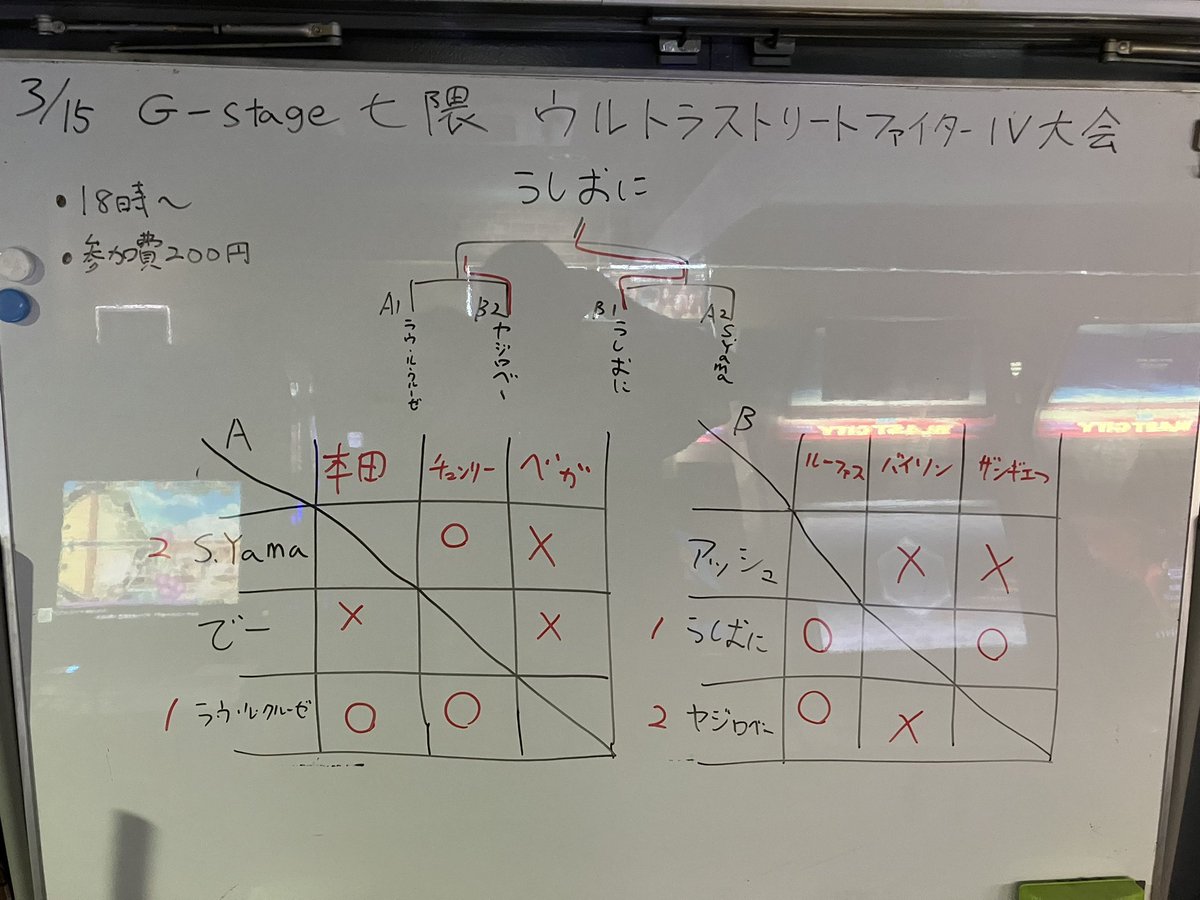 3/15 G-stage 七隈 ウルトラストリートファイターIV大会
・18時〜
・参加費200円
うしおに
A1 B2 B1 A2
ラウ・ル・クルーゼ ヤジロベー うしおに S.Yama
A 本田 チュンリー ベガ
2 S.Yama ○ ×
でー × ×
1 ラウ・ル・クルーゼ ○ ○
B ルーファス バイソン ザンギエフ
アッシュ × ×
1 うしおに ○ ○
2 ヤジロベー ○ ×